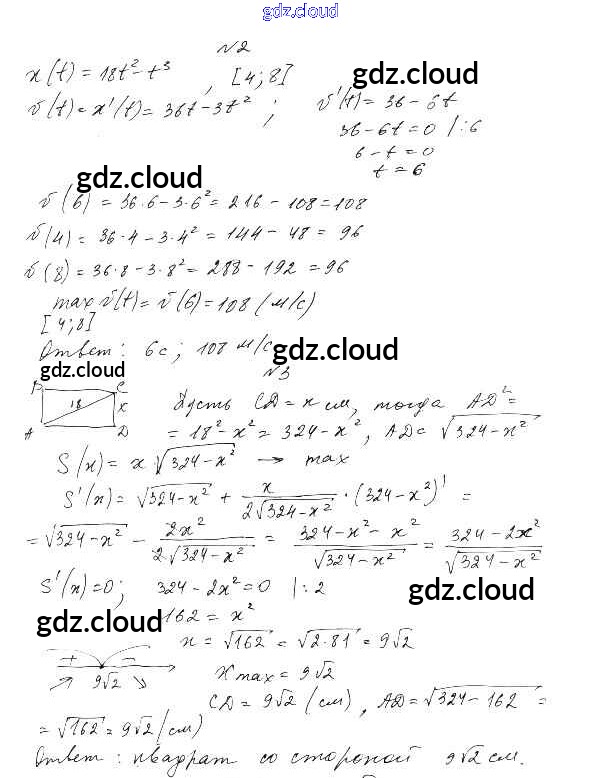 gdz.cloud
N2
x(t) = 18t² - t³, [4; 8]
gdz.cloud
v(t) = x'(t) = 36t - 3t²; v'(t) = 36 - 6t
36 - 6t = 0 |:6
6 - t = 0
t = 6
gdz.cloud
v(6) = 36·6 - 3·6² = 216 - 108 = 108
v(4) = 36·4 - 3·4² = 144 - 48 = 96
v(8) = 36·8 - 3·8² = 288 - 192 = 96
max v(t) = v(6) = 108 (м/с)
[4; 8]
Ответ: 6с; 108 м/с
gdz.cloud
N3
B C
18 x
A D
Пусть CD = x см, тогда AD² =
= 18² - x² = 324 - x², AD = √(324 - x²)
S(x) = x √(324 - x²) → max
S'(x) = √(324 - x²) + x/(2√(324 - x²)) · (324 - x²)' =
= √(324 - x²) - 2x²/(2√(324 - x²)) = (324 - x² - x²)/√(324 - x²) = (324 - 2x²)/√(324 - x²)
S'(x) = 0; 324 - 2x² = 0 |:2
gdz.cloud
162 = x²
gdz.cloud
x = √162 = √(2·81) = 9√2
+ -
9√2
x max = 9√2
CD = 9√2 (см), AD = √(324 - 162) =
= √162 = 9√2 (см)
Ответ: квадрат со стороной 9√2 см.